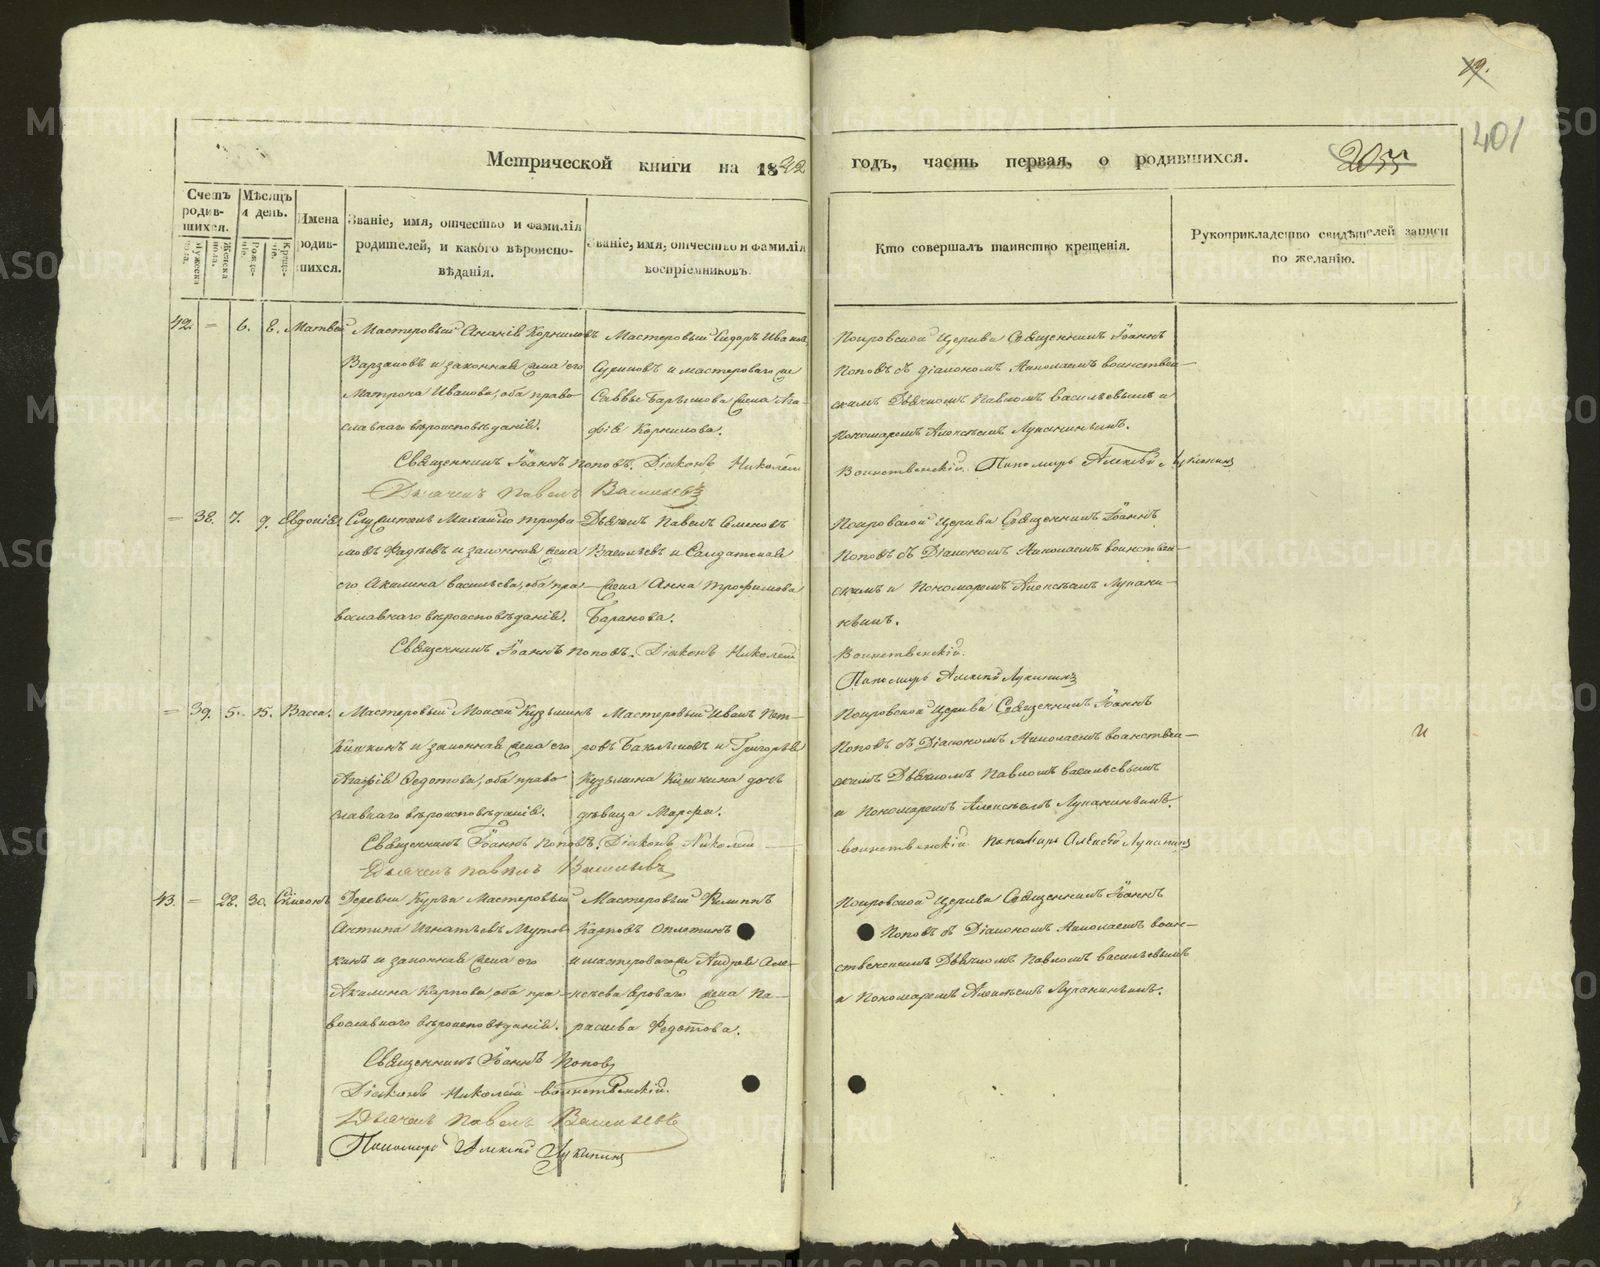 19.
401
2055
Метрической книги на 1842 годъ, часть первая, о родившихся.
Счетъ родив-шихся.
Мужеска пола.
Женска пола.
Мѣсяцъ и день.
Рожде-нія.
Креще-нія.
Имена родив-шихся.
Званіе, имя, отчество и фамилія
родителей, и какого вѣроиспо-
вѣданія.
Званіе, имя, отчество и фамилія
воспріемниковъ.
Кто совершалъ таинство крещенія.
Рукоприкладство свидѣтелей записи
по желанію.
42. — 6. 8. Матвей
Мастеровый Ананій Корниловъ
Варзаковъ и законная жена его
Матрона Иванова, оба право-
славнаго вѣроисповѣданія.
Мастеровый Сидоръ Ивановъ
Суриновъ и мастероваго
Саввы Барышова жена Ага-
фія Корнилова.
Покровской Церкви Священникъ Іоаннъ
Поповъ съ діакономъ Николаемъ воинствен-
скимъ Дьячкомъ Павломъ Васильевымъ и
Пономаремъ Алексѣемъ Лукининымъ.
Священникъ Іоаннъ Поповъ. Діаконъ Николай
Воинственскій. Пономарь Алексѣй Лукининъ
Дьячекъ Павелъ Васильевъ
— 38. 7. 9. Евдокія
Служитель Михайло Трофи-
мовъ Фадѣевъ и законная жена
его Акилина Васильева, оба пра-
вославнаго вѣроисповѣданія.
Дьячекъ Павелъ Семеновъ
Васильевъ и Солдатская
жена Анна Трофимова
Баранова.
Покровской Церкви Священникъ Іоаннъ
Поповъ съ Діакономъ Николаемъ воинствен-
скимъ и Пономаремъ Алексѣемъ Лукини-
нымъ.
Священникъ Іоаннъ Поповъ. Діаконъ Николай
Воинственскій.
Пономарь Алексѣй Лукининъ
— 39. 5. 15. Васса.
Мастеровый Моисей Кузьминъ
Кишкинъ и законная жена его
Агафія Федотова, оба право-
славнаго вѣроисповѣданія.
Мастеровый Иванъ Пет-
ровъ Баклыковъ и Григорья
Кузьмина Кишкина дочь
дѣвица Марфа.
Покровской Церкви Священникъ Іоаннъ
Поповъ съ Діакономъ Николаемъ воинствен-
скимъ Дьячкомъ Павломъ Васильевымъ
и Пономаремъ Алексѣемъ Лукининымъ.
Священникъ Іоаннъ Поповъ. Діаконъ Николай
воинственскій Пономарь Алексѣй Лукининъ
Дьячекъ Павелъ Васильевъ
43. — 28. 30. Сѵмеонъ
Деревни Курьи Мастеровый
Антипа Игнатьевъ Мутов-
кинъ и законная жена его
Акилина Карпова, оба пра-
вославнаго вѣроисповѣданія.
Мастеровый Филиппъ
Карповъ Оплеткинъ
и мастероваго Андрея Але-
ксѣева жена Па-
расковья Федотова.
Покровской Церкви Священникъ Іоаннъ
Поповъ съ Діакономъ Николаемъ воин-
ственскимъ Дьячкомъ Павломъ Васильевымъ
и Пономаремъ Алексѣемъ Лукининымъ.
Священникъ Іоаннъ Поповъ
Діаконъ Николай воинственскій.
Дьячекъ Павелъ Васильевъ
Пономарь Алексѣй Лукининъ
METRIKI.GASO-URAL.RU